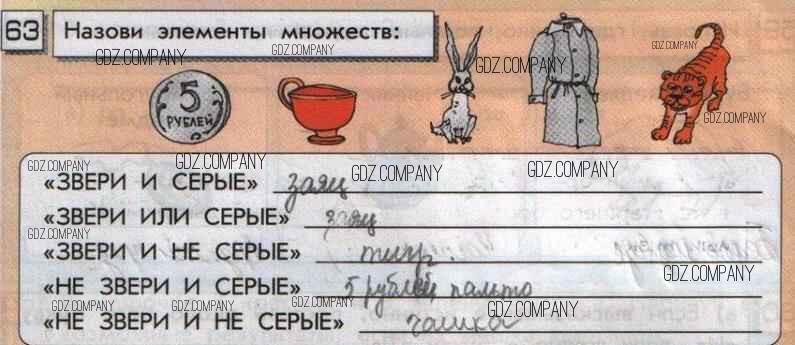 63 Назови элементы множеств:
GDZ.COMPANY GDZ.COMPANY GDZ.COMPANY GDZ.COMPANY
5 РУБЛЕЙ
GDZ.COMPANY
GDZ.COMPANY GDZ.COMPANY GDZ.COMPANY GDZ.COMPANY
«ЗВЕРИ И СЕРЫЕ» заяц
«ЗВЕРИ ИЛИ СЕРЫЕ» заяц
GDZ.COMPANY
«ЗВЕРИ И НЕ СЕРЫЕ» тигр.
GDZ.COMPANY
«НЕ ЗВЕРИ И СЕРЫЕ» 5 рублей пальто
GDZ.COMPANY GDZ.COMPANY GDZ.COMPANY GDZ.COMPANY
«НЕ ЗВЕРИ И НЕ СЕРЫЕ» чашка